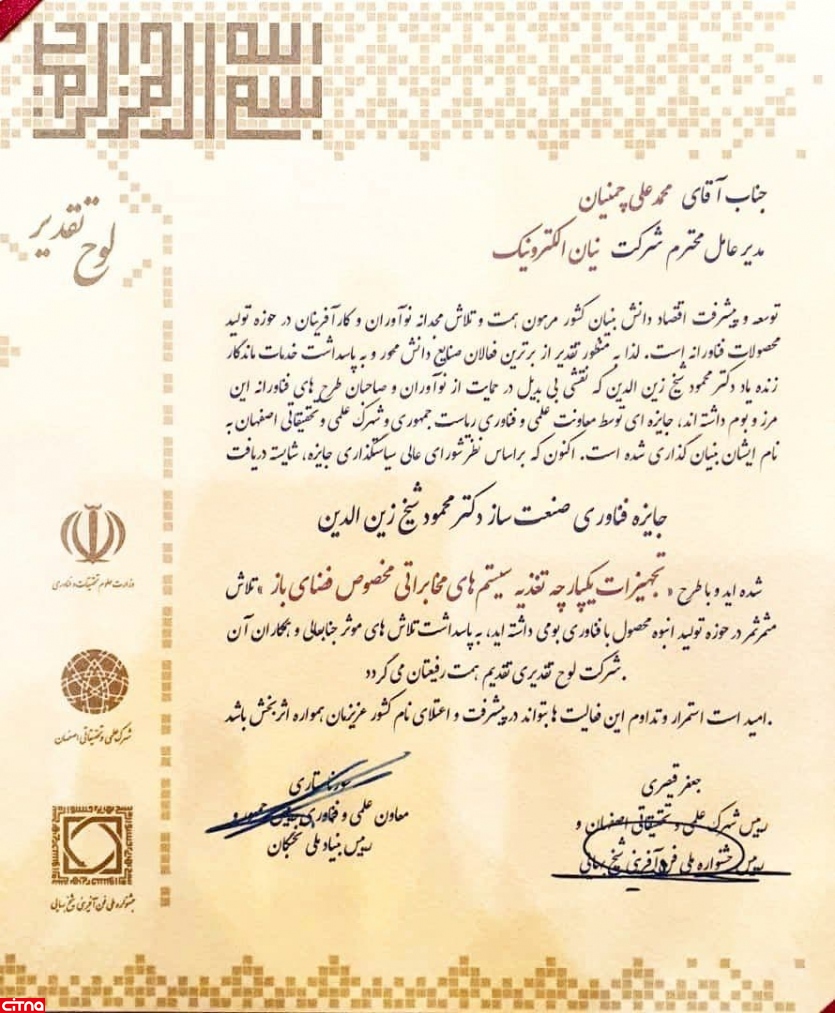 بسم الله الرحمن الرحیم
لوح تقدیر
جناب آقای محمدعلی چمنیان
مدیرعامل محترم شرکت نیان الکترونیک
توسعه و پیشرفت اقتصاد دانش بنیان کشور مرهون همت و تلاش مجدانه نوآوران و کارآفرینان در حوزه تولید
محصولات فناورانه است. لذا به منظور تقدیر از برترین فعالان صنایع دانش محور و به پاسداشت خدمات ماندگار
زنده یاد دکتر محمود شیخ زین الدین که نقشی بی بدیل در حمایت از نوآوران و صاحبان طرح های فناورانه این
مرز و بوم داشته اند، جایزه ای توسط معاونت علمی و فناوری ریاست جمهوری و شهرک علمی و تحقیقاتی اصفهان به
نام ایشان بنیان گذاری شده است. اکنون که براساس نظر شورای عالی سیاستگذاری جایزه، شایسته دریافت
جایزه فناوری صنعت ساز دکتر محمود شیخ زین الدین
شده اید و با طرح « تجهیزات یکپارچه تغذیه سیستم های مخابراتی مخصوص فضای باز » تلاش
مثمرثمر در حوزه تولید انبوه محصول با فناوری بومی داشته اید، به پاسداشت تلاش های موثر جنابعالی و همکاران آن
شرکت لوح تقدیری تقدیم همت رفیعتان می گردد.
امید است استمرار و تداوم این فعالیت ها بتواند در پیشرفت و اعتلای نام کشور عزیزمان همواره اثربخش باشد.
جعفر قیصری
رییس شهرک علمی و تحقیقاتی اصفهان و
رییس جشنواره ملی فن آفرینی شیخ بهایی
سورنا ستاری
معاون علمی و فناوری رییس جمهور و
رییس بنیاد ملی نخبگان
وزارت علوم، تحقیقات و فناوری
شهرک علمی و تحقیقاتی اصفهان
جشنواره ملی فن آفرینی شیخ بهایی
citna